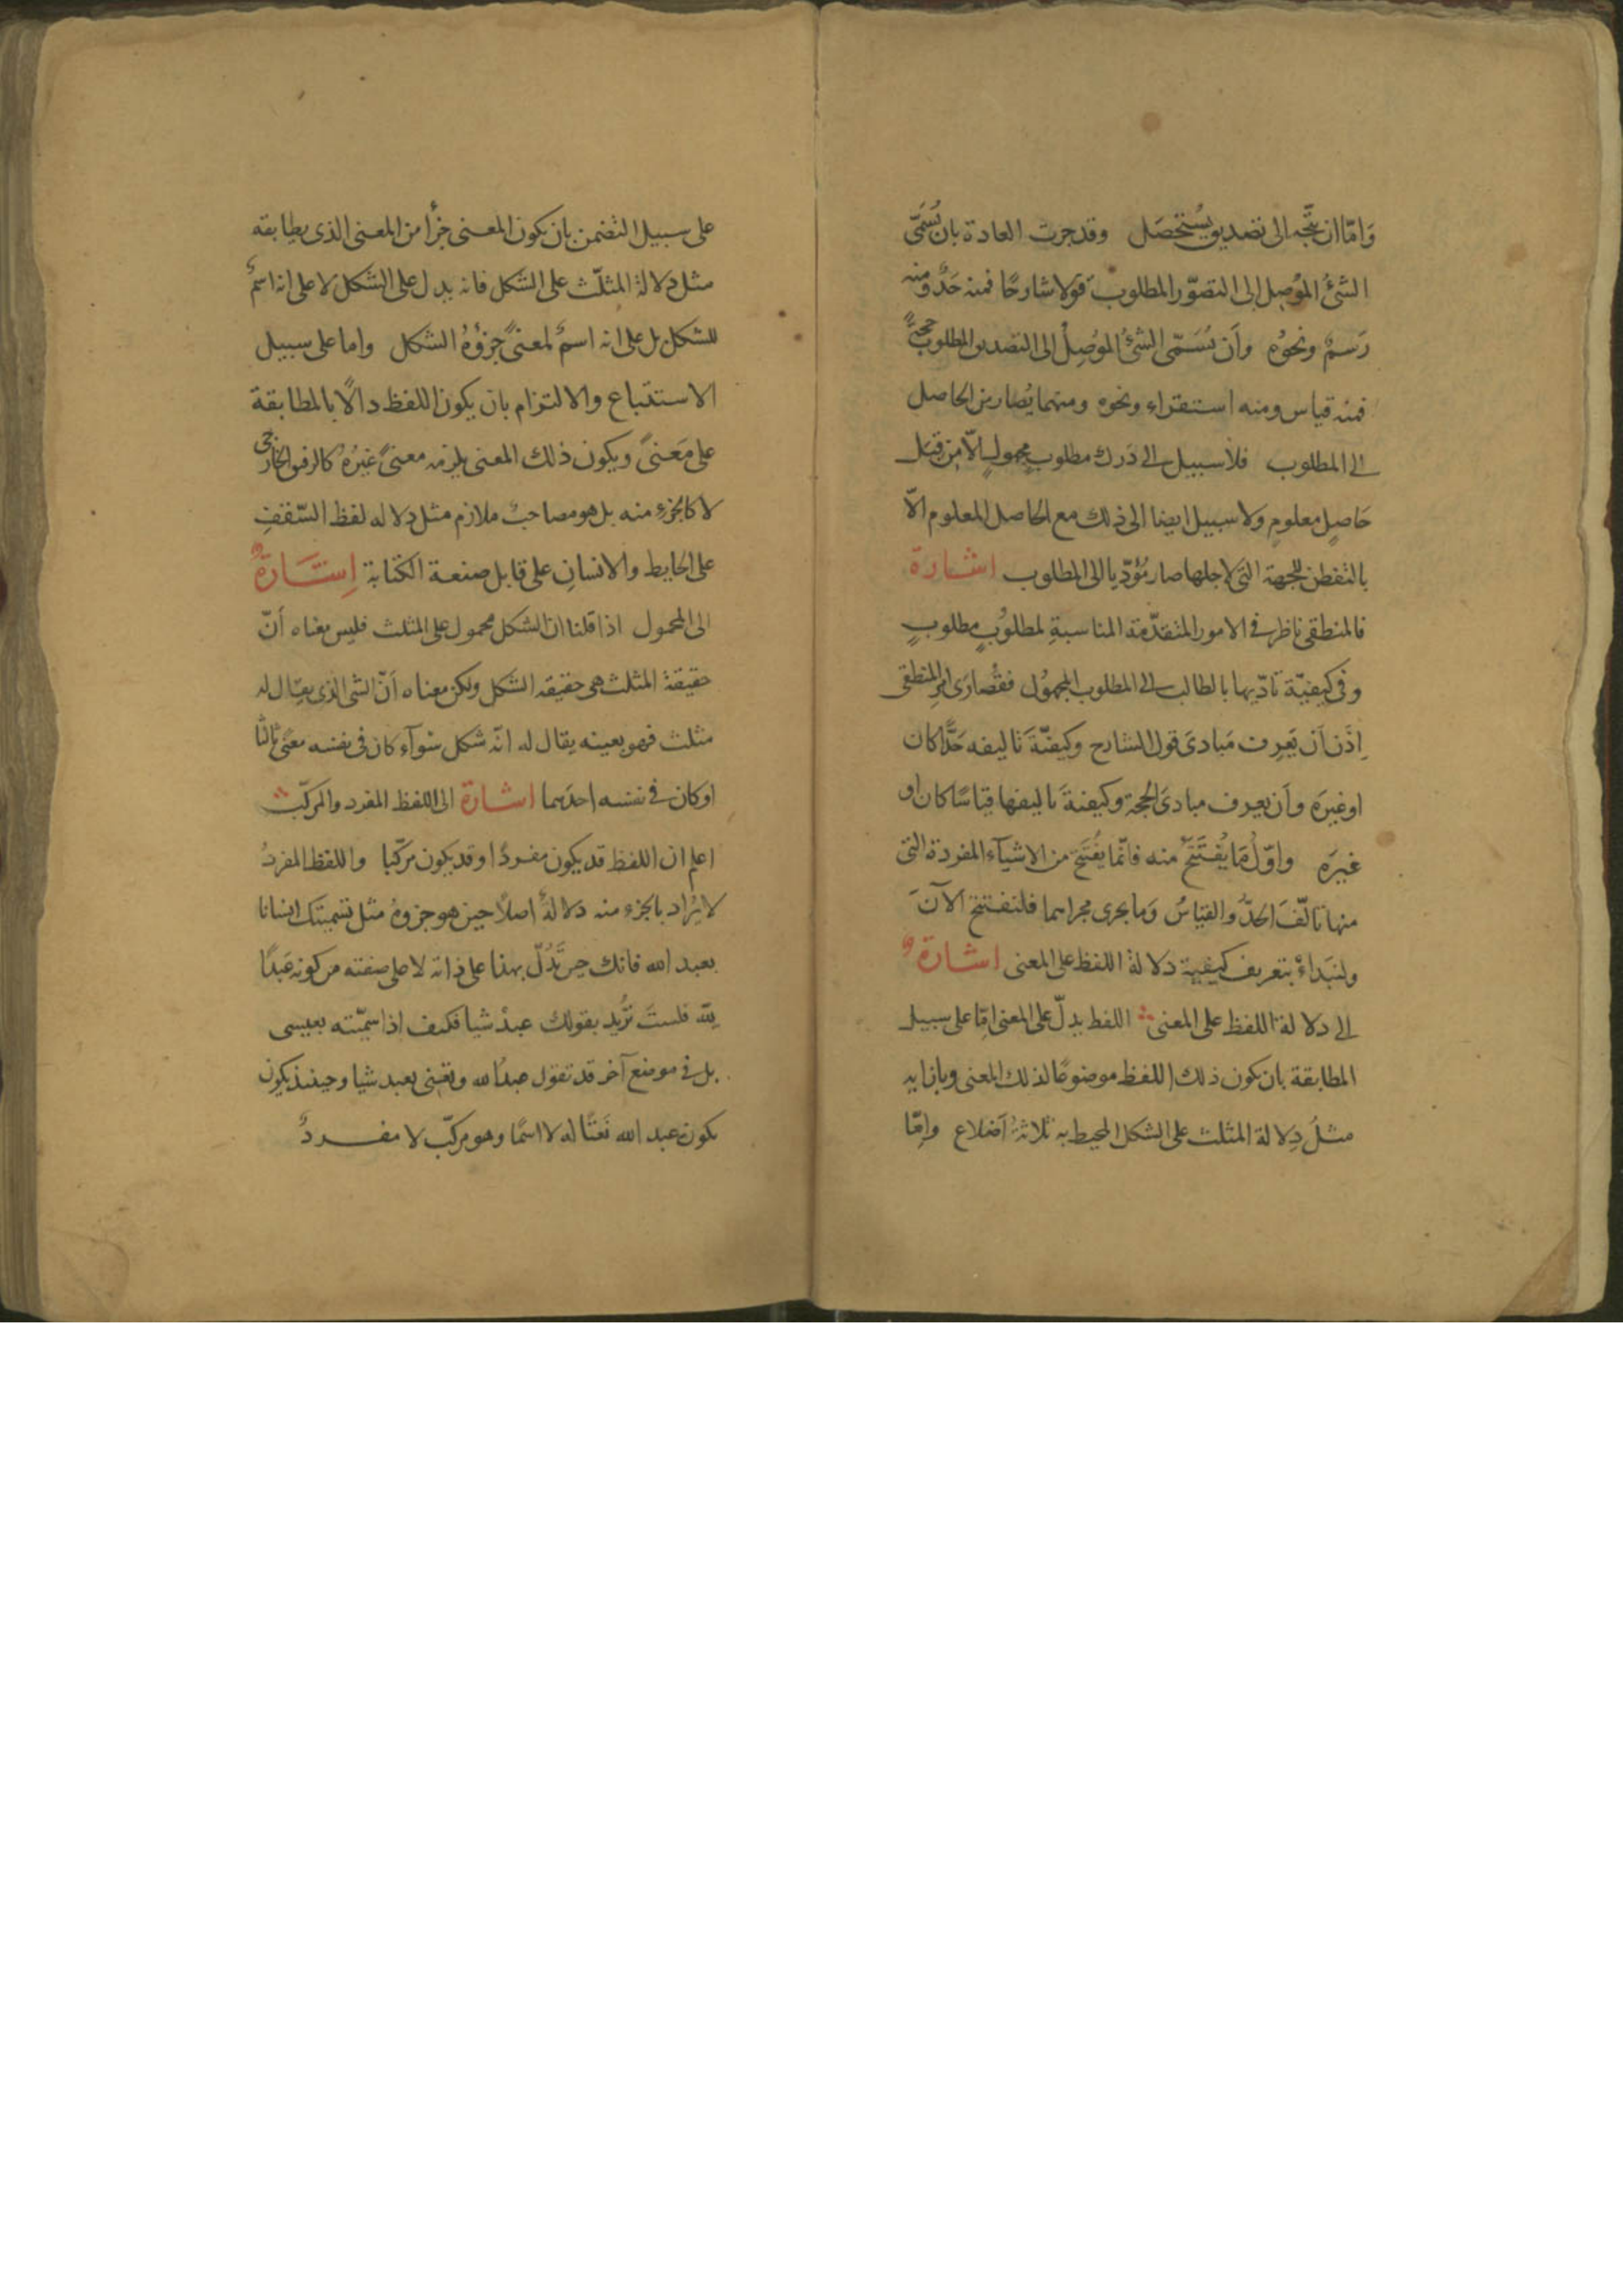 وَامّا ان يتّجه الى تصديق يُستحصَل وقد جرت العادة بان يُسَمَّى
الشئُ المُوصِل الى التصوّر المطلوب قولا شارحًا فمنه حَدٌّ ومنه
رَسمٌ ونحوُه وأن يُسَمّى الشئُ المُوصِلُ الى التصديق المطلوب حجةً
فمنه قياس ومنه استقراء ونحوه ومنهما يُصار من الحاصل
الى المطلوب فلا سبيل الى دَرك مطلوب مجهولٍ الّا من قِبَل
حَاصِلٍ معلومٍ ولا سبيل ايضا الى ذلك مع الحاصل المعلوم الّا
بالتفطن للجهة التى لاجلها صار مُؤدّيا الى المطلوب اشارة
فالمنطقى ناظر فى الامور المتقدّمة المناسبةِ لمطلوبٍ مطلوبٍ
وفى كيفيّة تأدّيها بالطالب الى المطلوب المجهُول فقُصارَى امر المنطقى
اِذَن اَن يَعرِف مَبادىَ قول الشارح وكيفيّةَ تاليفه حَدًّا كان
او غيرَه واَن يعرف مبادىَ الحجة وكيفيةَ تاليفها قياسًا كان او
غيرَه واوّلُ مَا يُفتَتَحُ منه فانّما يُفتَتَح من الاشيآء المفردة التى
منها تالّفَ الحدُّ والقياسُ وَما يجرى مجراهما فلنفتتح الآنَ
ولنَبدأْ بتعريف كيفية دَلالة اللفظ على المعنى اشارة
الى دلالة اللفظ على المعنى اللفظ يدلّ على المعنى امّا على سبيل
المطابقة بان يكون ذلك اللفظ موضوعًا لذلك المعنى وبازايه
مثلُ دِلالة المثلث على الشكل المحيط به ثلاثةُ اَضلاع وامّا
على سبيل التضمن بان يكون المعنى جزأ من المعنى الذى يطابقه
مثل دلالة المثلّث على الشكل فانه يدل على الشكل لا على انه اسمٌ
للشكل بل على انه اسمٌ لمعنىً جزؤهُ الشكل واما على سبيل
الاستتباع والالتزام بان يكون اللفظ دالًا بالمطابقة
على مَعنىً ويكون ذلك المعنى يلزمه معنىً غيرُه كالرفيق الخارجى
لا كالجزءِ منه بل هو مصاحبٌ ملازم مثل دلاله لفظ السّقفِ
على الحايط والانسانِ على قابل صنعة الكتابة اِشَارةٌ
الى المحمول اذا قلنا ان الشكل محمول على المثلث فليس معناه أنّ
حقيقة المثلث هى حقيقه الشكل ولكن معناه اَنّ الشى الذى يقال له
مثلث فهو بعينه يقال له انّه شكل سَوآء كان فى نفسه معنًى ثالثًا
او كان فى نفسه احدَهما اشارة الى اللفظ المفرد والمركّب
اعلم ان اللفظ قد يكون مفردًا وقد يكون مركّبا واللفظ المفردُ
لا يُراد بالجزء منه دلالةٌ اصلًا حين هو جزوهُ مثل تسميتك انسانا
بعبد الله فانك حين تَدُلّ بهذا على ذاته لا على صفته من كونه عَبدًا
لله فلستَ تُريد بقولك عبدٌ شيا فكيف اذا سمّيته بعيسى
بل فى موضع آخر قد تقول عبدُ الله وتعنى بعبد شيا وحينئذ يكون
يكون عبد الله نَعتًا له لا اسمًا وهو مركّب لا مفردٌ